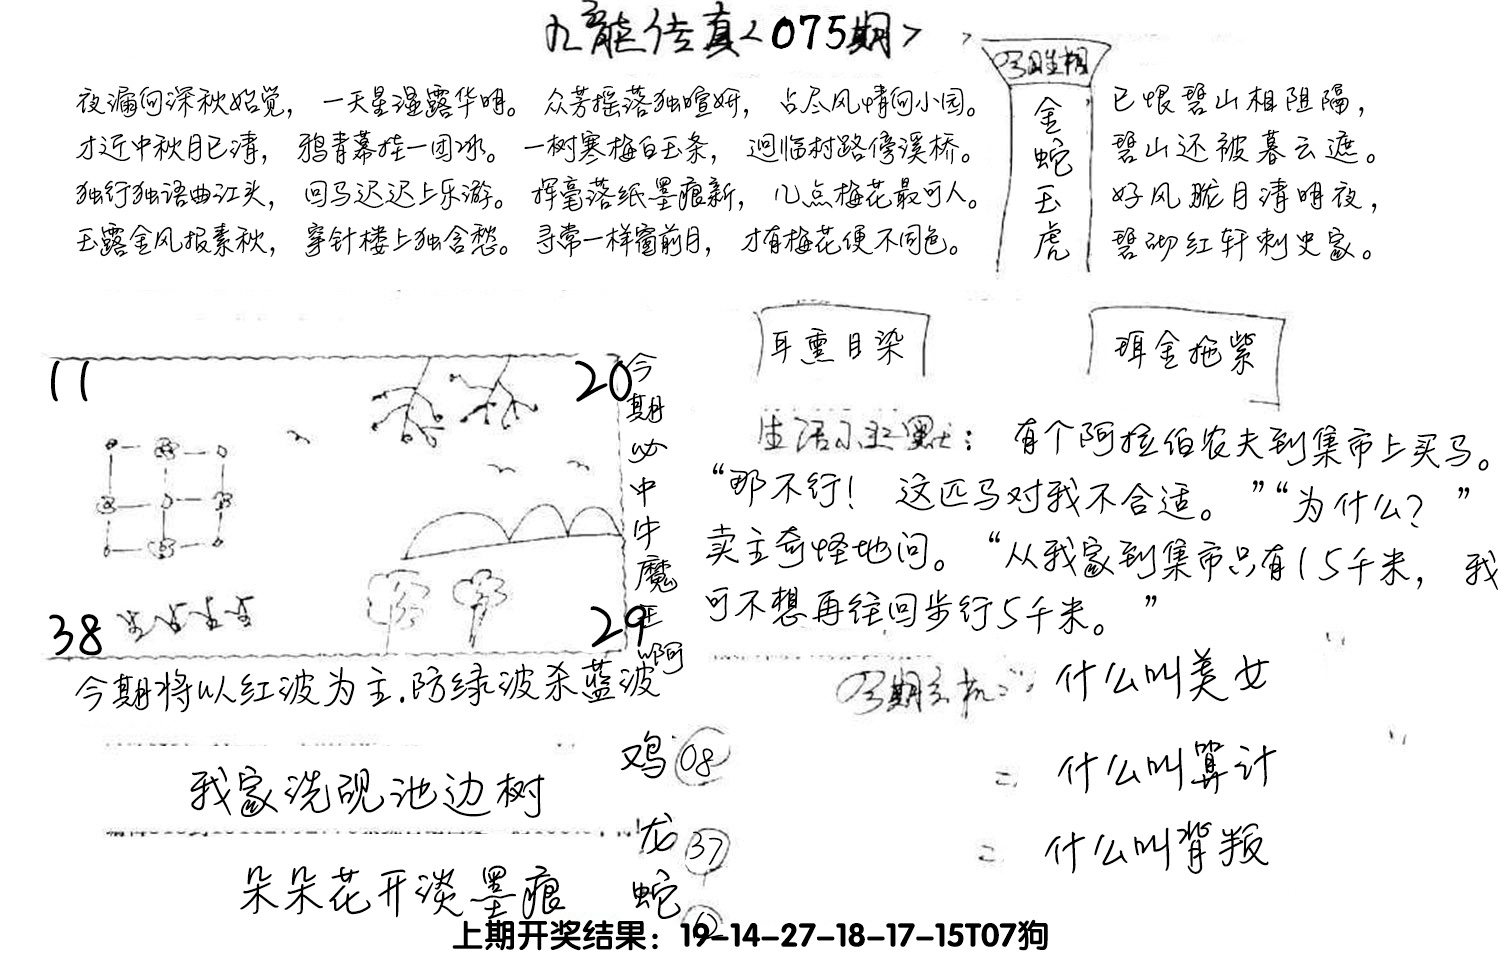 九龙传真<075期>
夜漏何深秋始觉，一天星湿露华明。众芳摇落独喧妍，占尽风情向小园。
才近中秋月已清，鸦青幕挂一团冰。一树寒梅白玉条，迥临村路傍溪桥。
独行独语曲江头，回马迟迟上乐游。挥毫落纸墨痕新，几点梅花最可人。
玉露金风报素秋，穿针楼上独含愁。寻常一样窗前月，才有梅花便不同色。
金蛇玉虎
已恨碧山相阻隔，
碧山还被暮云遮。
好风胧月清明夜，
碧砌红轩刺史家。
耳熏目染
珥金拖紫
11
20
38
29
今期必中牛魔王啊
今期将以红波为主.防绿波杀蓝波
生活小幽默：有个阿拉伯农夫到集市上买马。
“那不行！这匹马对我不合适。”“为什么？”
卖主奇怪地问。“从我家到集市只有15千米，我
可不想再往回步行5千米。”
我家洗砚池边树
朵朵花开淡墨痕
鸡 08
龙 37
蛇
今期玄机：什么叫美女
= 什么叫算计
= 什么叫背叛
上期开奖结果：19-14-27-18-17-15T07狗